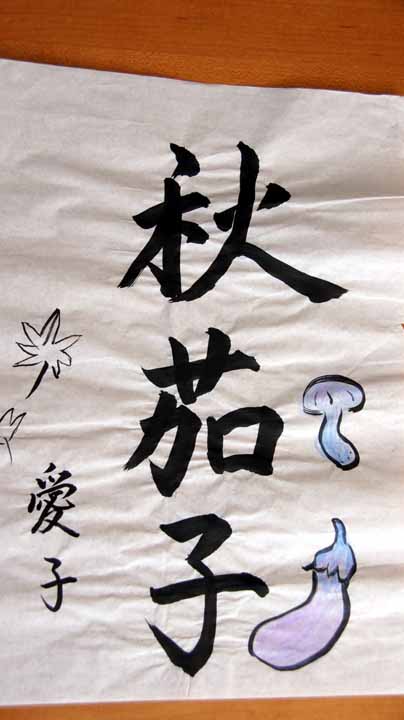 秋茄子
愛子